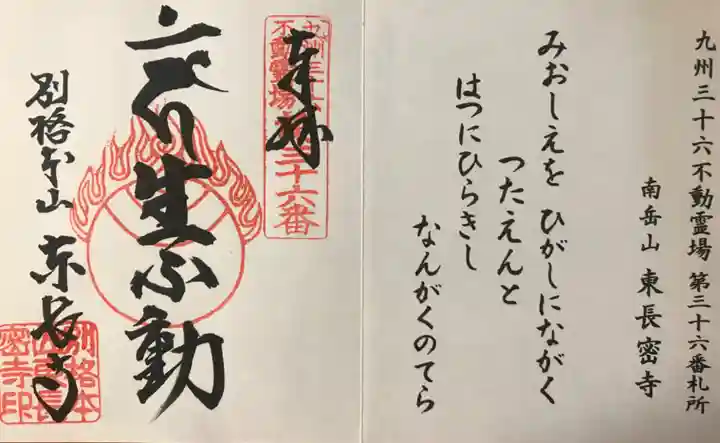 九州三十六不動霊場 第三十六番札所
南岳山 東長密寺
みおしえを ひがしにながく
つたえんと
はつにひらきし
なんがくのてら
九州三十六
不動霊場
第三十六番
奉拝
不動
別格本山 東長寺
別格本
山東長
密寺印